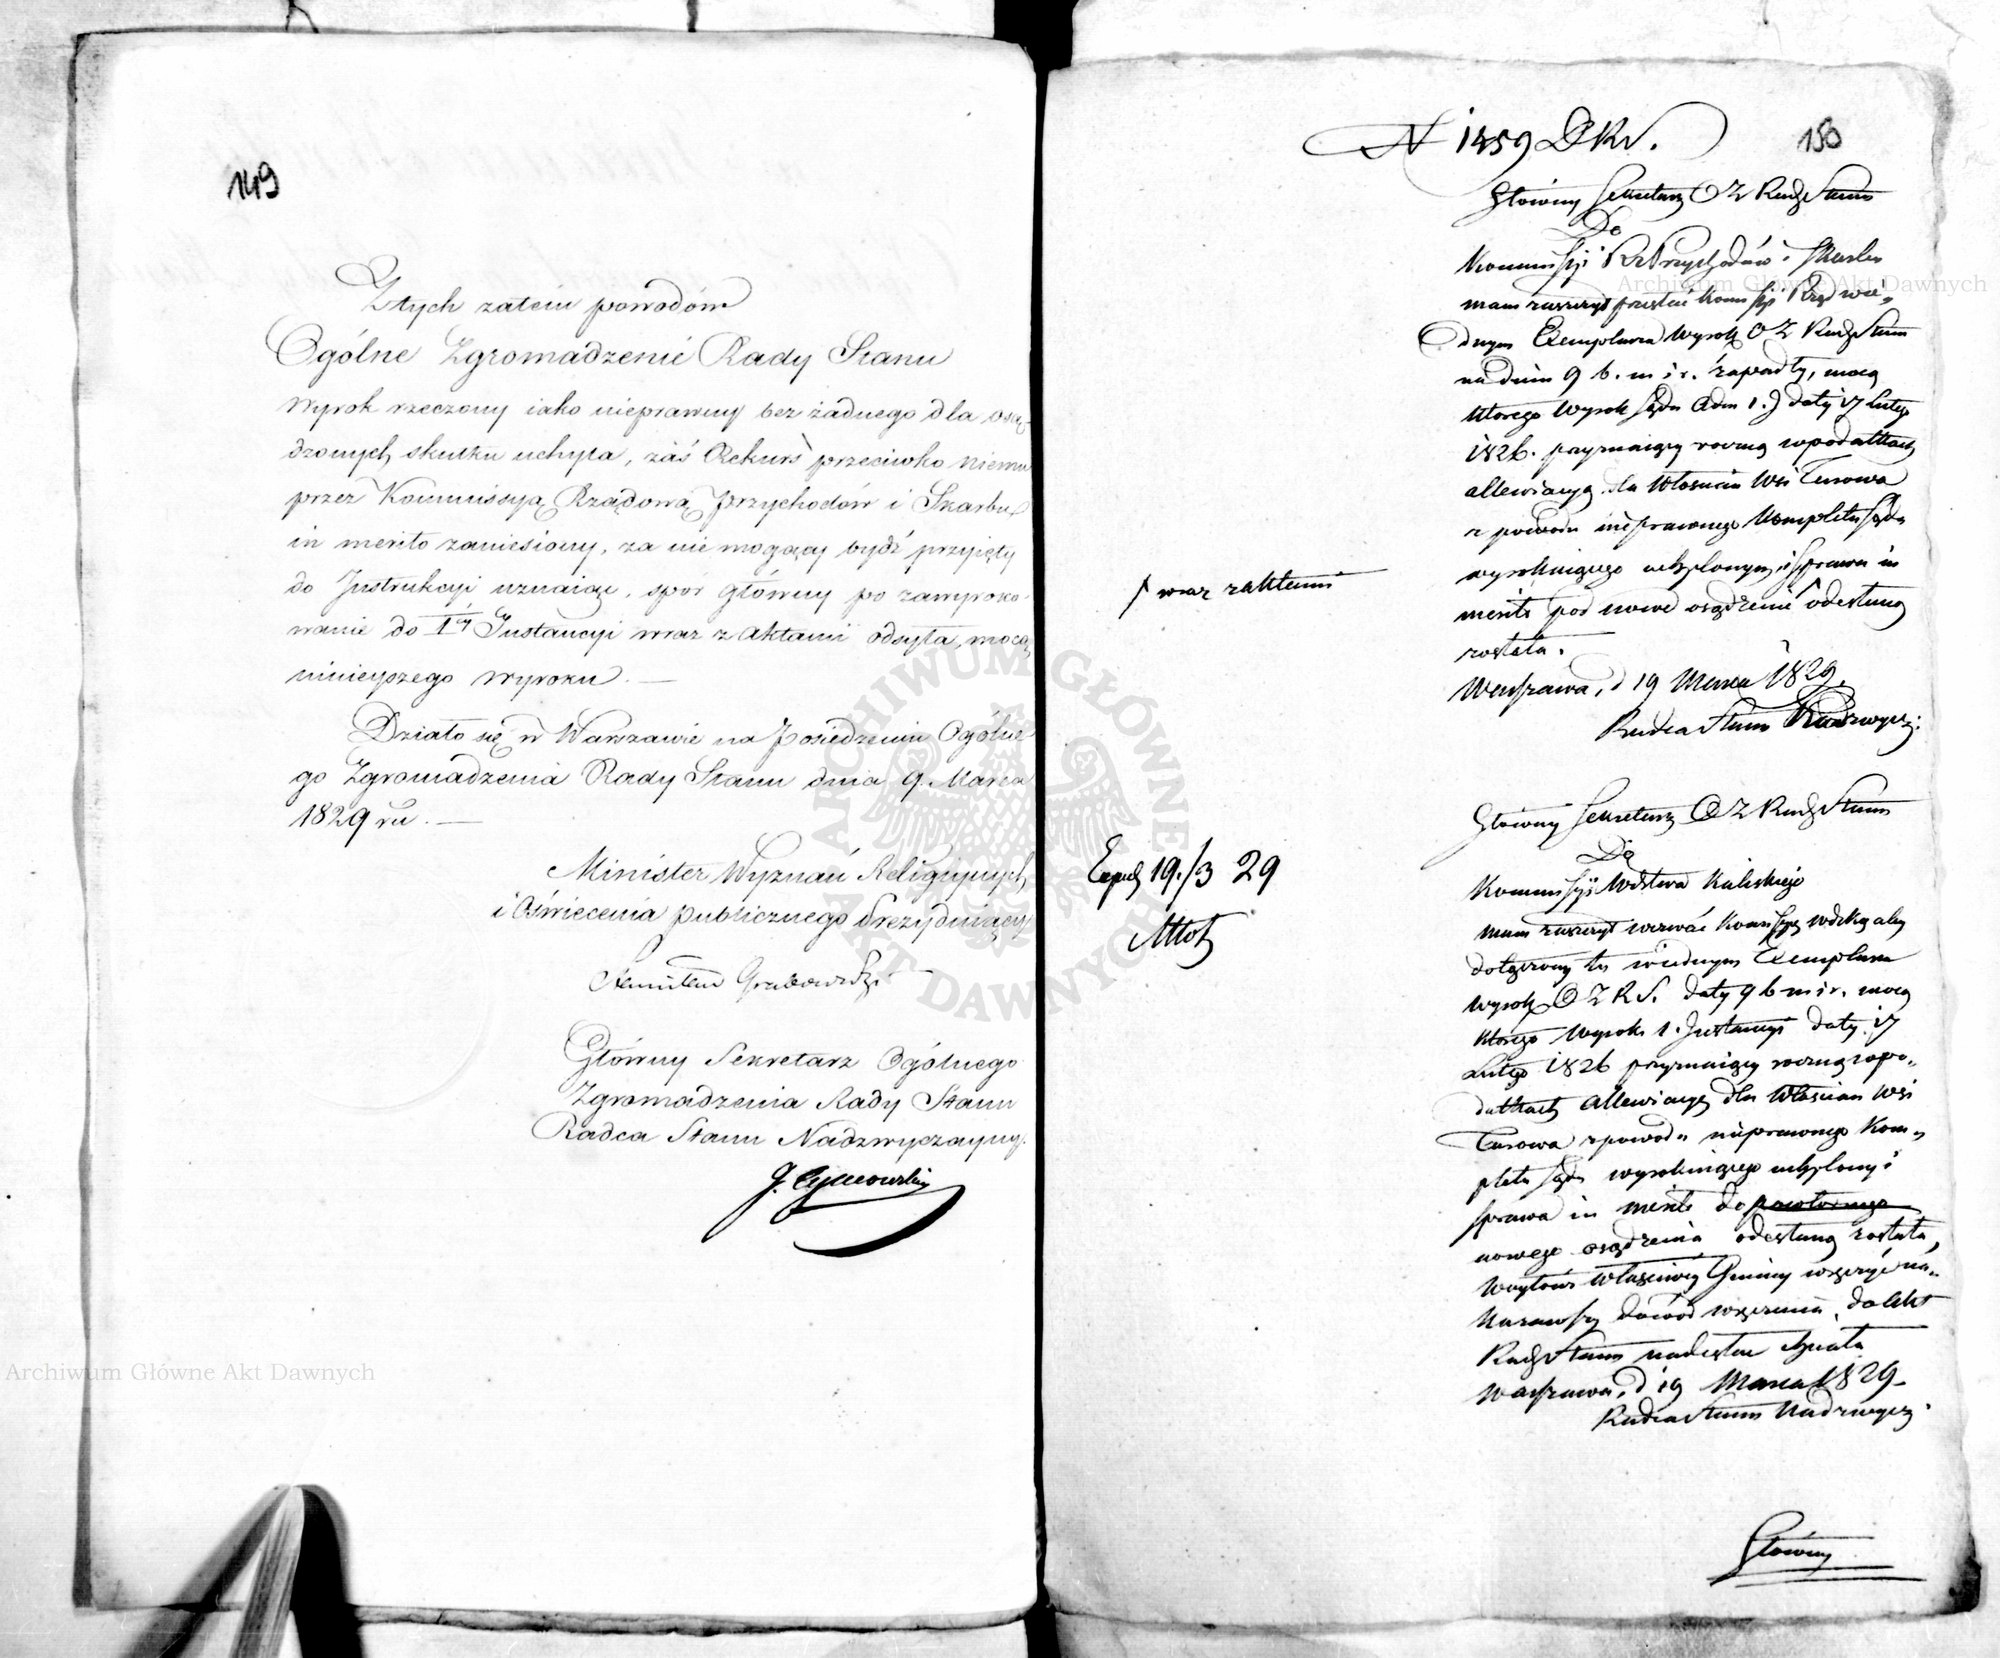 149
Z tych zatem powodów
Ogólne Zgromadzenie Rady Stanu
wyrok rzeczony iako nieprawny bez żadnego dla osą-
dzonych skutku uchyla, zaś Rekurs przeciwko niemu
przez Kommissyą Rządową Przychodów i Skarbu
in merito zaniesiony, za nie mogący bydź przyięty
do Instrukcyi uznaiąc, spór główny po zawyroko-
wanie do 1éy Instancyi wraz z Aktami odsyła, mocą
ninieyszego wyroku. —
Działo się w Warszawie na Posiedzeniu Ogólne-
go Zgromadzenia Rady Stanu dnia 9. Marca
1829 ru. —
Minister Wyznań Religiynych
i Oświecenia publicznego Prezyduiący
Stanisław Grabowski
Główny Sekretarz Ogólnego
Zgromadzenia Rady Stanu
Radca Stanu Nadzwyczayny.
J. Tymowski
N 1459 DKS.
150
Główny Sekretarz OZ Rady Stanu
Do
Kommissyi R Przychodów i Skarbu
mam zaszczyt przesłać Kommissyi Rząd w ie-
dnym Exemplarzu Wyrok OZ Rady Stanu
na dniu 9 b. m i r. zapadły, mocą
którego Wyrok Sądu Adm 1. J daty 17 Lutego
1826. przyznaiący roczną w podatkach
allewiacyą dla Włościan Wsi Turowa
z powodu nieprawnego Kompletu Sądu
wyrokuiącego uchylonym, i sprawa in
merito pod nowe osądzenie odesłaną
została.
/ wraz z aktami
Warszawa, d 19 Marca 1829.
Radca Stanu Nadzwycz:
Główny Sekretarz OZ Rady Stanu
Do
Kommissyi Wdztwa Kaliskiego
Exped 19./3 29
mam zaszczyt wezwać Kommissyą Wdzką aby
dołączony tu w iednym Exemplarzu
Wyrok OZ R S. daty 9 b m i r. mocą
którego Wyrok 1. Instancyi daty 17
Lutego 1826 przyznaiący roczną w po-
datkach allewiacyą dla Włościan Wsi
Turowa z powodu nieprawnego Kom-
pletu Sądu wyrokuiącego uchylony i
sprawa in merito do powtórnego
nowego osądzenia odesłaną została,
Wóytowi właściwéy Gminy wręczyć na-
kazawszy dowód wręczenia do Akt
Rady Stanu nadesłać chciała
Warszawa, d 19 Marca 1829.
Radca Stanu Nadzwycz:
Główny
ARCHIWUM GŁÓWNE AKT DAWNYCH
Archiwum Główne Akt Dawnych
Archiwum Główne Akt Dawnych